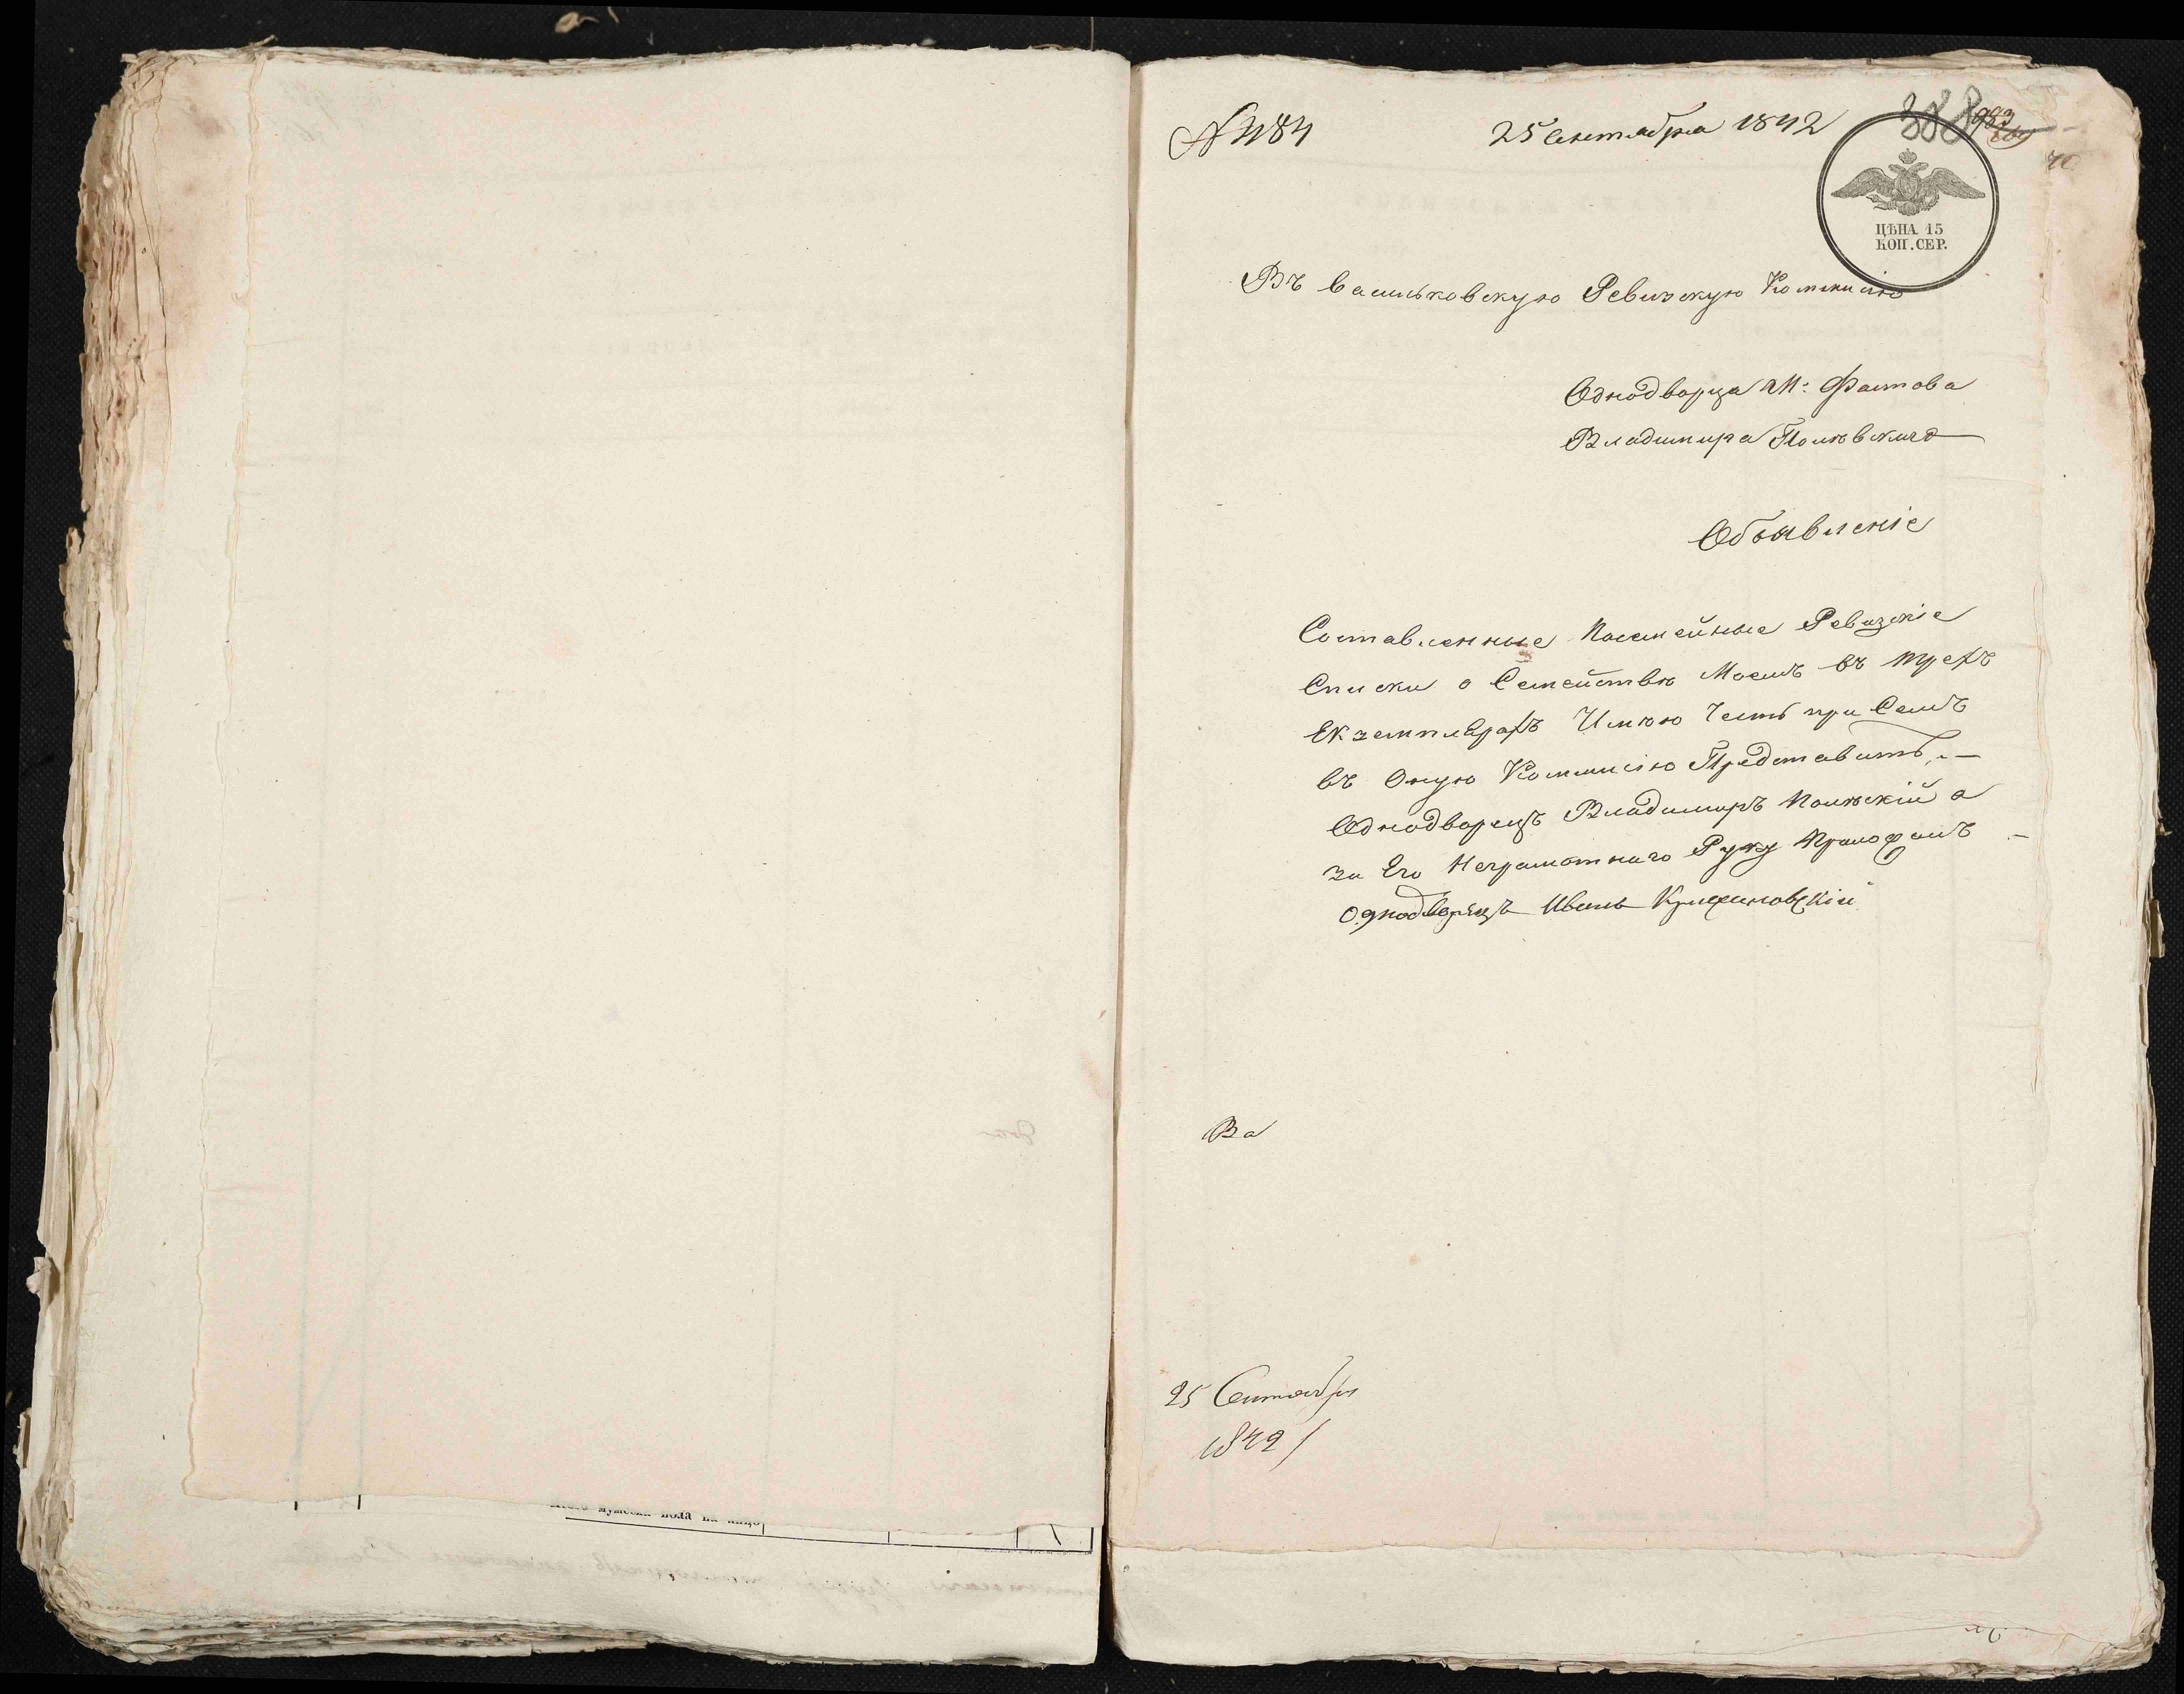 № 1184
25 Сентября 1842
388
983
ЦѢНА 15
КОП. СЕР.
Въ васильковскую Ревизскую Коммисію
Однодворца М: Фастова
Владимира
Объявленіе
Составленные Посемейные Ревизкіе
Списки о Семействѣ Моемъ въ трехъ
Екземплярахъ Имѣю Честь при Семъ
въ Оную Коммисію Представить. —
Однодворецъ Владимиръ а
за Его Неграмотнаго Руку Приложилъ —
Однодворецъ Иванъ
Ва
25 Сентября
1842
мужеска пола на лицо